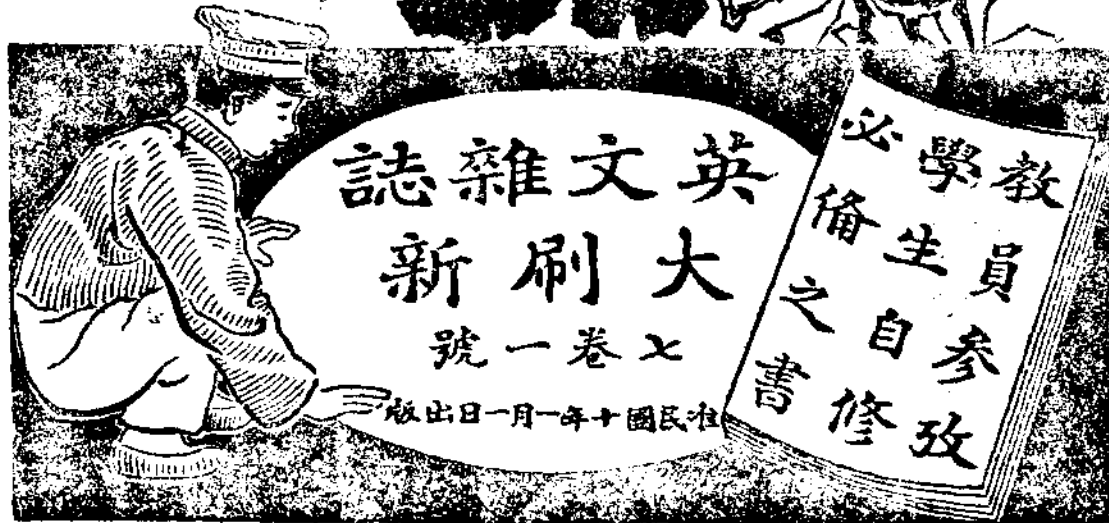 英文雜誌
大刷新
七卷一號
准民國十年一月一日出版
教員參攷
學生自修
必備之書